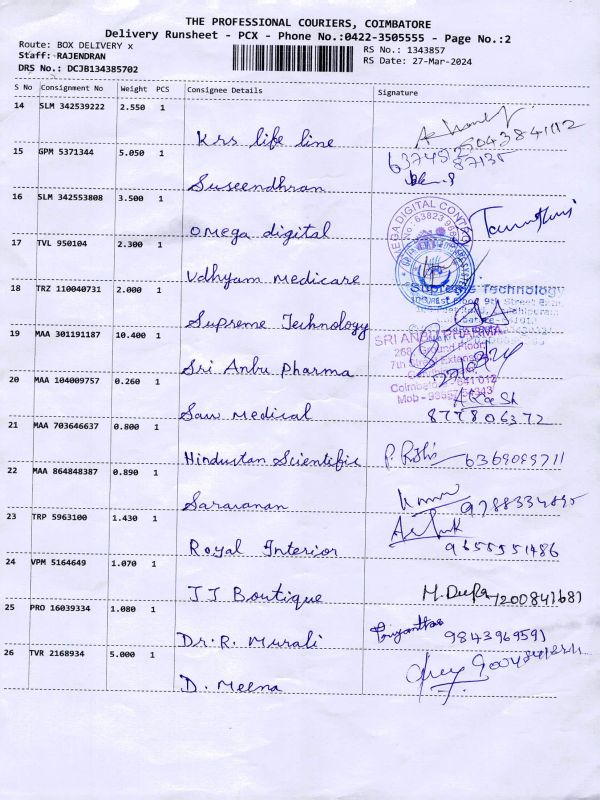 THE PROFESSIONAL COURIERS, COIMBATORE
Delivery Runsheet - PCX - Phone No.:0422-3505555 - Page No.:2
Route: BOX DELIVERY x
RS No.: 1343857
Staff: RAJENDRAN
RS Date: 27-Mar-2024
DRS No.: DCJB134385702
S No Consignment No Weight PCS Consignee Details Signature
14 SLM 342539222 2.550 1
Krs life line
15 GPM 5371344 5.050 1
Suseendhran
16 SLM 342553808 3.500 1
Omega digital
17 TVL 950104 2.300 1
Vdhyam Medicare
18 TRZ 110040731 2.000 1
Supreme Technology
Supreme Technology
19 MAA 301191187 10.400 1
SRI ANBU PHARMA
Sri Anbu Pharma
20 MAA 104009757 0.260 1
Saw Medical
877806372
21 MAA 703646637 0.800 1
Hindustan Scientific
22 MAA 864848387 0.890 1
Saravanan
23 TRP 5963100 1.430 1
Royal Interior
9655551486
24 VPM 5164649 1.070 1
JJ Boutique
25 PRO 16039334 1.080 1
Dr.R. Murali
9843969591
26 TVR 2168934 5.000 1
D. Meena